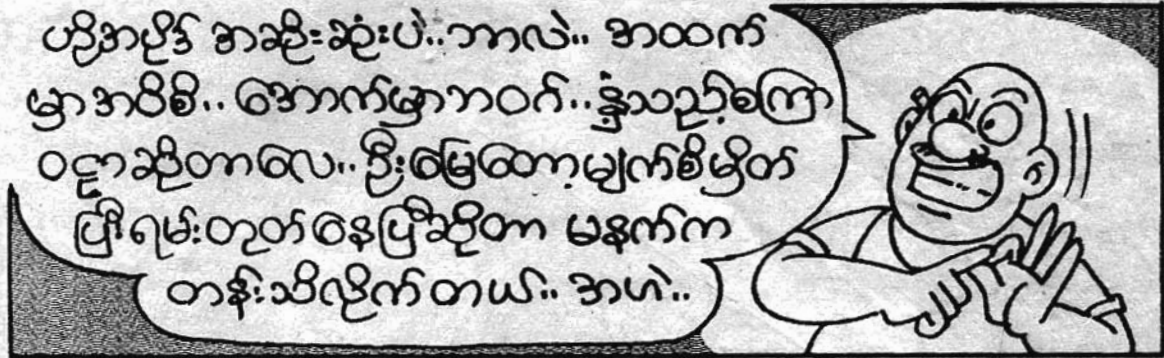 ဟိုအပိုဒ် အဆိုးဆုံးပဲ.. ဘာလဲ.. အထက်
မှာအဝိစိ.. အောက်မှာဘဝဂ်.. နှံ့သည့်စကြာ
ဝဠာဆိုတာလေ.. ဦးမြေတော့မျက်စိမှိတ်
ပြီးရမ်းတုတ်နေပြီဆိုတာ မနက်က
တန်းသိလိုက်တယ်.. အဟဲ..